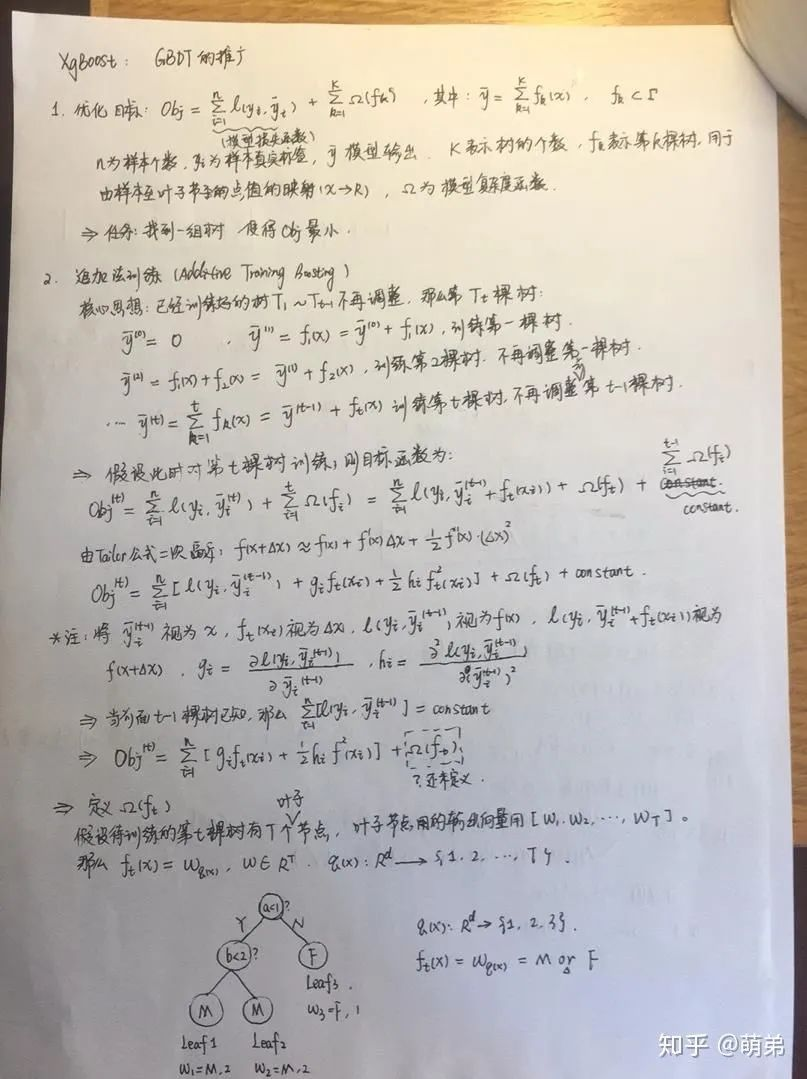 XgBoost: GBDT的推广
1. 优化目标: Obj = Σ_{i=1}^{n} l(yi, ȳi) + Σ_{k=1}^{K} Ω(fk), 其中: ȳ = Σ_{k=1}^{K} fk(x), fk < Γ
(模型损失函数)
n为样本个数, yi为样本真实标签, ȳ 模型输出. K表示树的个数, fk表示第k棵树, 用于
由样本至叶子节点的点值的映射(x→R), Ω为模型复杂度函数.
⇒ 任务: 找到一组树 使得Obj最小.
2. 追加法训练 (Additive Traning Boosting)
核心思想: 已经训练好的树T1 ~ Tt-1不再调整, 那么第Tt棵树:
ȳ^(0) = 0, ȳ^(1) = f1(x) = ȳ^(0) + f1(x), 训练第一棵树.
ȳ^(2) = f1(x) + f2(x) = ȳ^(1) + f2(x), 训练第2棵树. 不再调整第一棵树.
... ȳ^(t) = Σ_{k=1}^{t} fk(x) = ȳ^(t-1) + ft(x) 训练第t棵树, 不再调整第t-1棵树.
⇒ 假设此时对第t棵树训练, 则目标函数为:
Obj^(t) = Σ_{i=1}^{n} l(yi, ȳi^(t)) + Σ_{i=1}^{t} Ω(fi) = Σ_{i=1}^{n} l(yi, ȳi^(t-1) + ft(xi)) + Ω(ft) + Σ_{i=1}^{t-1} Ω(fi)
constant.
constant.
由Tailor公式二次展开: f(x+Δx) ≈ f(x) + f'(x)Δx + 1/2 f''(x)·(Δx)²
Obj^(t) = Σ_{i=1}^{n} [l(yi, ȳi^(t-1)) + gi ft(xi) + 1/2 hi ft²(xi)] + Ω(ft) + constant.
*注: 将 ȳi^(t-1) 视为 x, ft(xi)视为Δx, l(yi, ȳi^(t-1))视为f(x), l(yi, ȳi^(t-1)+ft(xi))视为
f(x+Δx). gi = ∂l(yi, ȳi^(t-1)) / ∂ȳi^(t-1), hi = ∂²l(yi, ȳi^(t-1)) / ∂(ȳi^(t-1))²
⇒ 当前面t-1棵树已知, 那么 Σ_{i=1}^{n} [l(yi, ȳi^(t-1)] = constant
⇒ Obj^(t) = Σ_{i=1}^{n} [gi ft(xi) + 1/2 hi f²(xi)] + Ω(ft)
? 还未定义.
⇒ 定义Ω(ft)
假设待训练的第t棵树有T个叶子节点, 叶子节点用的输出向量用 [W1, W2, ..., WT]。
那么 ft(x) = Wq(x), W∈R^T. q(x): R^d → {1, 2, ..., T}.
a<1?
Y N
b<2? F
Leaf3.
W3=F, 1
M M
Leaf1 Leaf2
W1=M, 2 W2=M, 2
q(x): R^d → {1, 2, 3}.
ft(x) = Wq(x) = M or F
知乎 @萌弟